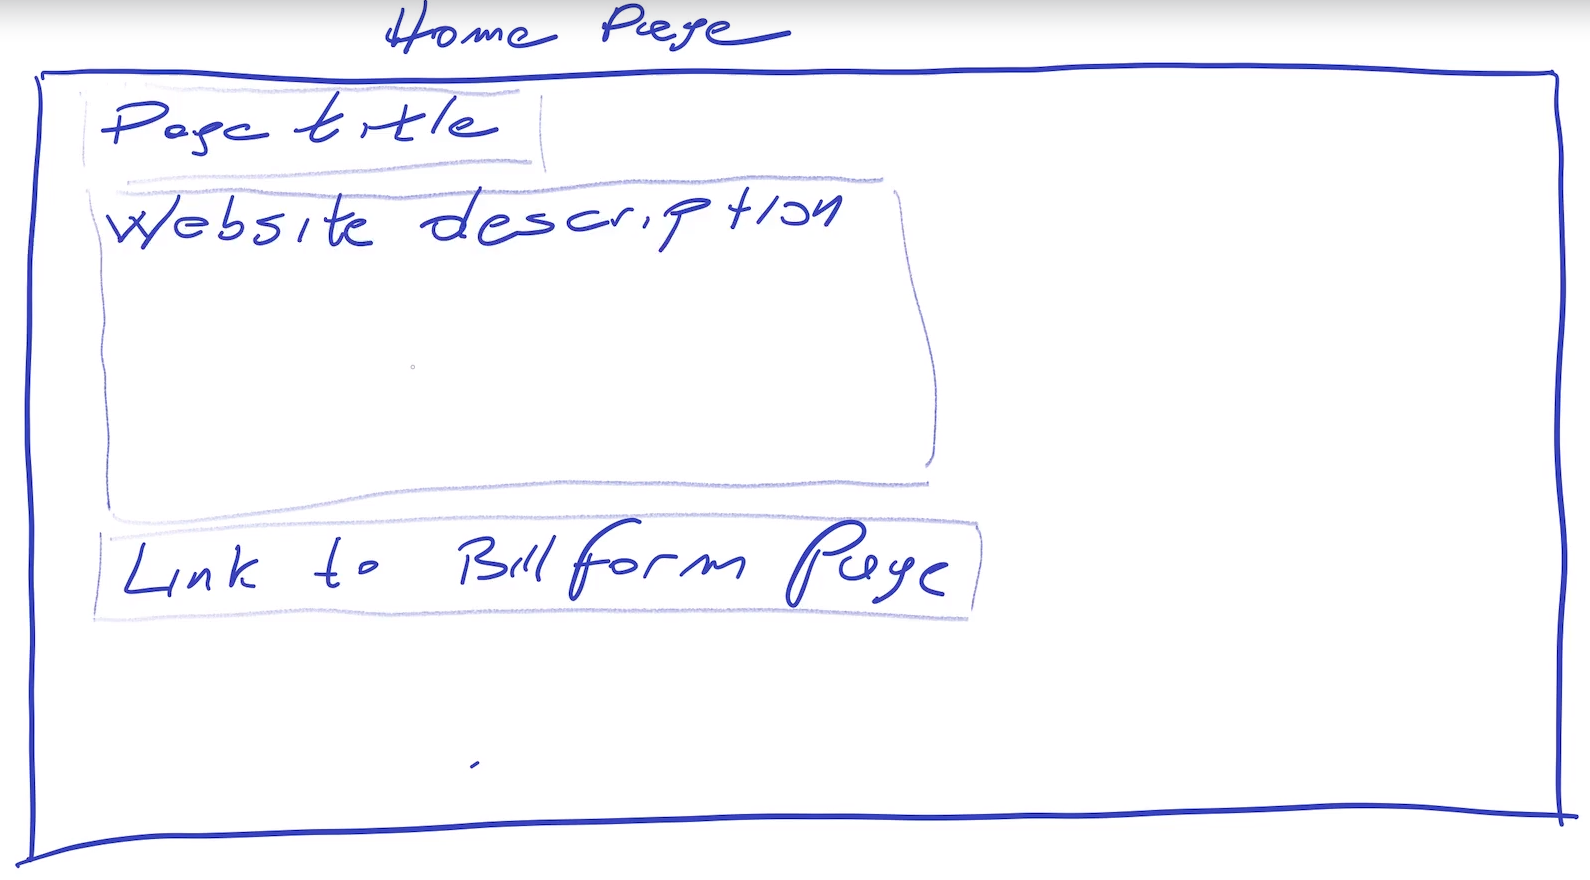 Home Page
Page title
Website description
Link to Bill form Page